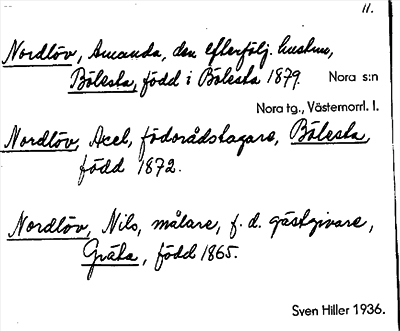 11.
Nordlöv, Amanda, den efterfölj. hustru,
Bölesta, född i Bölesta 1879. Nora s:n
Nora tg., Västernorrl. l.
Nordlöv, Axel, födorådstagare, Bölesta,
född 1872.
Nordlöv, Nils, målare, f. d. gästgivare,
Gräta, född 1865.
Sven Hiller 1936.